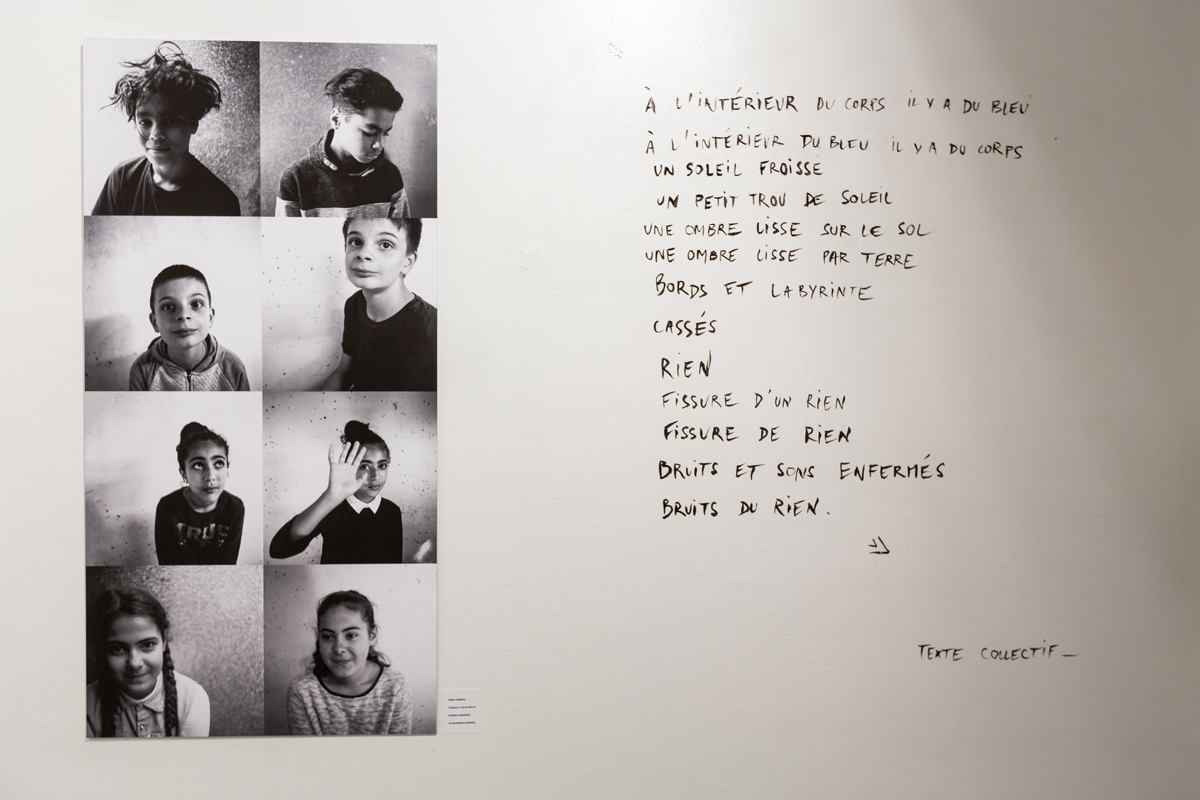 TRUE
À L'INTÉRIEUR DU CORPS IL Y A DU BLEU
À L'INTÉRIEUR DU BLEU IL Y A DU CORPS
UN SOLEIL FROISSÉ
UN PETIT TROU DE SOLEIL
UNE OMBRE LISSE SUR LE SOL
UNE OMBRE LISSE PAR TERRE
BORDS ET LABYRINTE
CASSÉS
RIEN
FISSURE D'UN RIEN
FISSURE DE RIEN
BRUITS ET SONS ENFERMÉS
BRUITS DU RIEN.
TEXTE COLLECTIF_